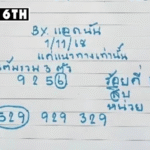 6TH
3X แอดนัน
1/11/68
แค่แนวทางเท่านั้น
3 ตัว
9 2 5 6
ร้อย
สิบ
หน่วย
529 929 329